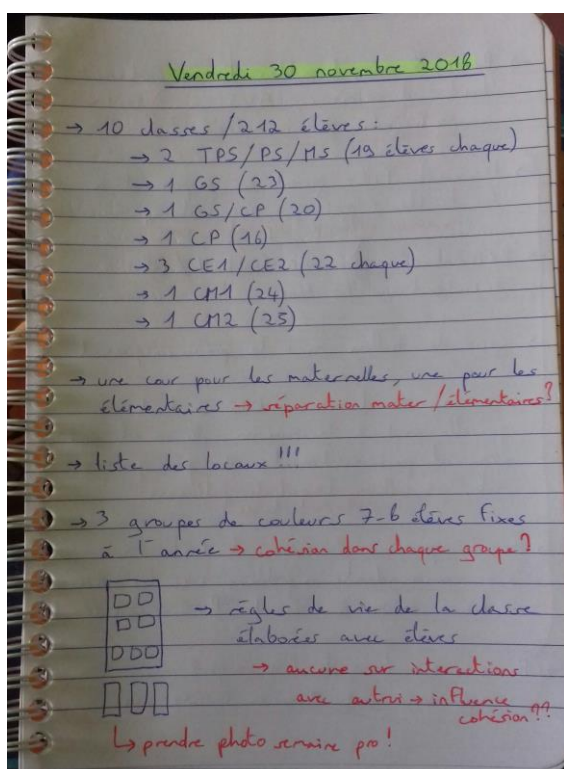 Vendredi 30 novembre 2018
→ 10 classes / 212 élèves :
→ 2 TPS/PS/MS (19 élèves chaque)
→ 1 GS (23)
→ 1 GS/CP (20)
→ 1 CP (16)
→ 3 CE1/CE2 (22 chaque)
→ 1 CM1 (24)
→ 1 CM2 (25)
→ une cour pour les maternelles, une pour les
élémentaires → séparation mater/élémentaires?
→ liste des locaux !!!
→ 3 groupes de couleurs 7-6 élèves fixes
à l'année → cohésion dans chaque groupe ?
→ règles de vie de la classe
élaborées avec élèves
→ aucune sur interactions
avec autrui → influence
cohésion ??
↳ prendre photo semaine pro !